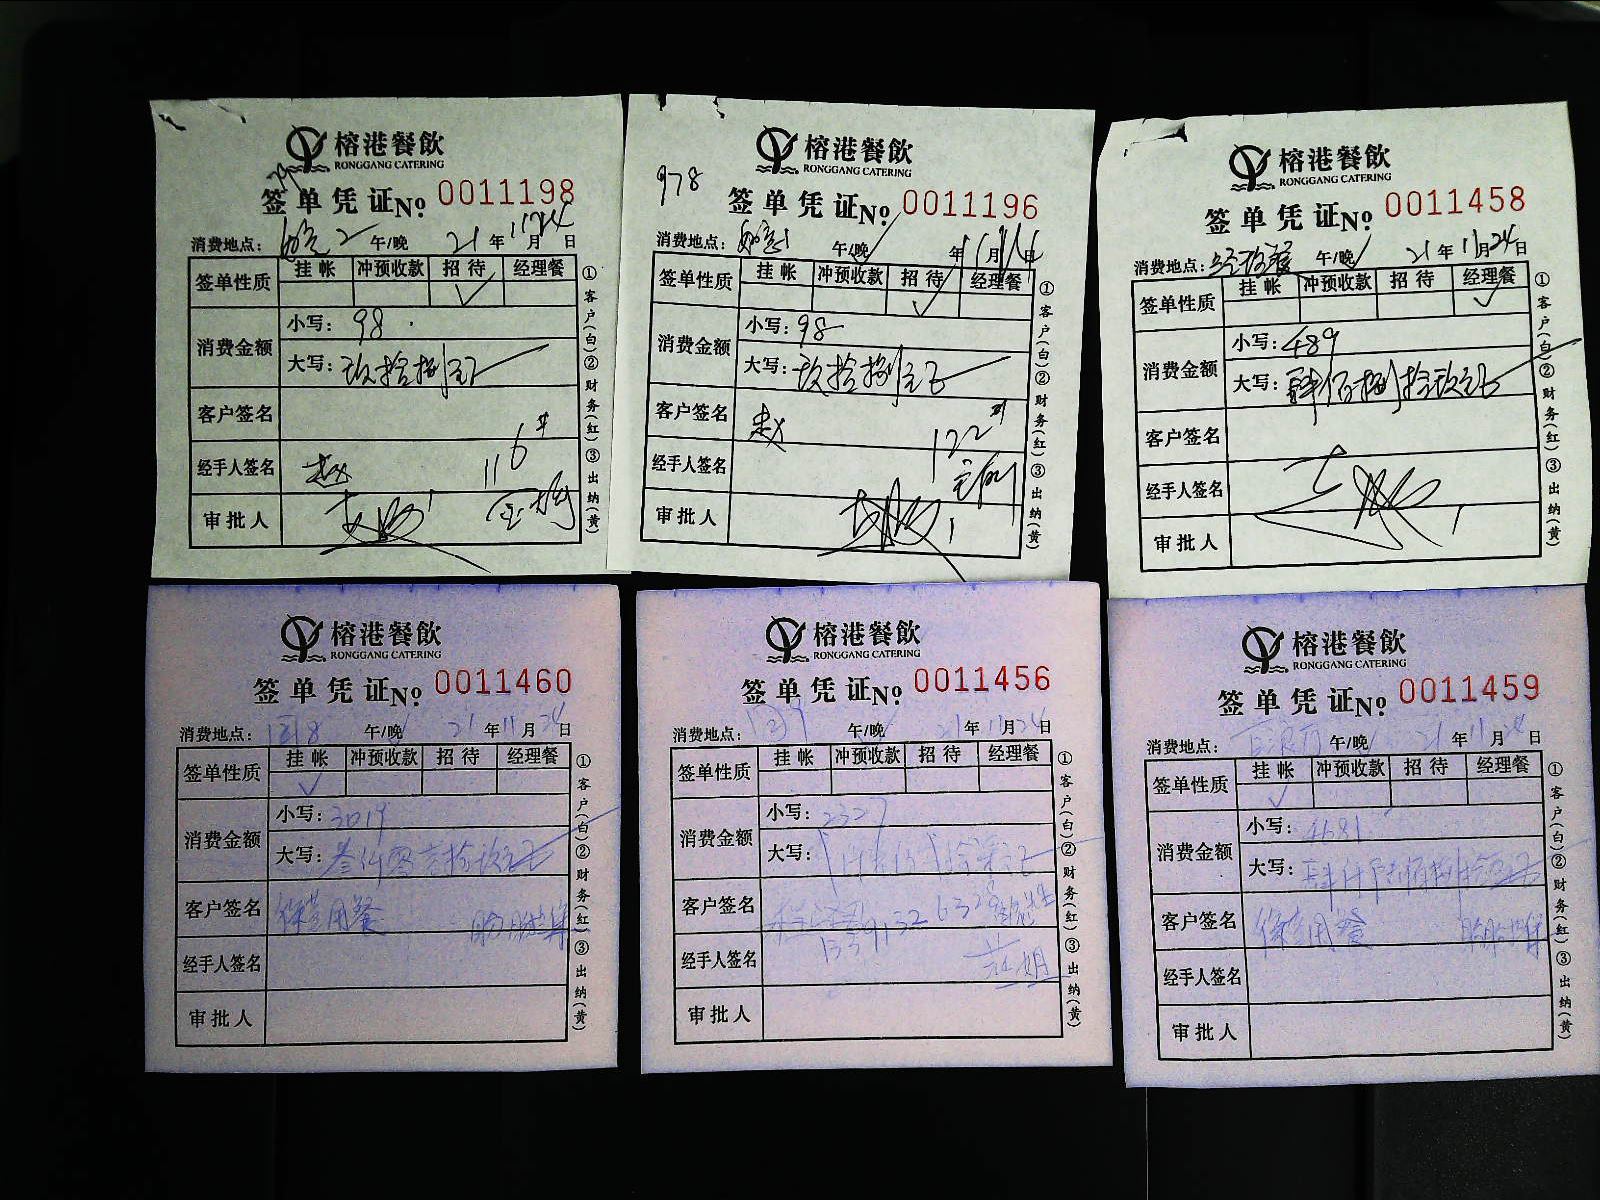 榕港餐飲
RONGGANG CATERING
签单凭证No 0011198
消费地点: 2 午/晚 21年11月24日
签单性质 挂帐 冲预收款 招待 经理餐
✓
消费金额 小写: 98
大写: 玖拾捌元
客户签名
经手人签名 赵 116#
审批人
①客户(白)②财务(红)③出纳(黄)
978
榕港餐飲
RONGGANG CATERING
签单凭证No 0011196
消费地点: 午/晚 年11月日
签单性质 挂帐 冲预收款 招待 经理餐
✓
消费金额 小写: 98
大写: 玖拾捌元正
客户签名 赵 122#
经手人签名
审批人
①客户(白)②财务(红)③出纳(黄)
榕港餐飲
RONGGANG CATERING
签单凭证No 0011458
消费地点: 经理餐 午/晚 21年11月24日
签单性质 挂帐 冲预收款 招待 经理餐
✓
消费金额 小写: 489
大写: 肆佰捌拾玖元正
客户签名
经手人签名
审批人
①客户(白)②财务(红)③出纳(黄)
榕港餐飲
RONGGANG CATERING
签单凭证No 0011460
消费地点: 午/晚 21年11月24日
签单性质 挂帐 冲预收款 招待 经理餐
✓
消费金额 小写: 3019
大写: 叁仟零壹拾玖元正
客户签名 用餐
经手人签名
审批人
①客户(白)②财务(红)③出纳(黄)
榕港餐飲
RONGGANG CATERING
签单凭证No 0011456
消费地点: 午/晚 21年11月24日
签单性质 挂帐 冲预收款 招待 经理餐
消费金额 小写: 2327
大写:
客户签名 先生
经手人签名
审批人
①客户(白)②财务(红)③出纳(黄)
榕港餐飲
RONGGANG CATERING
签单凭证No 0011459
消费地点: 午/晚 21年11月24日
签单性质 挂帐 冲预收款 招待 经理餐
✓
消费金额 小写: 4681
大写: 肆仟陆佰捌拾壹元正
客户签名 用餐
经手人签名
审批人
①客户(白)②财务(红)③出纳(黄)